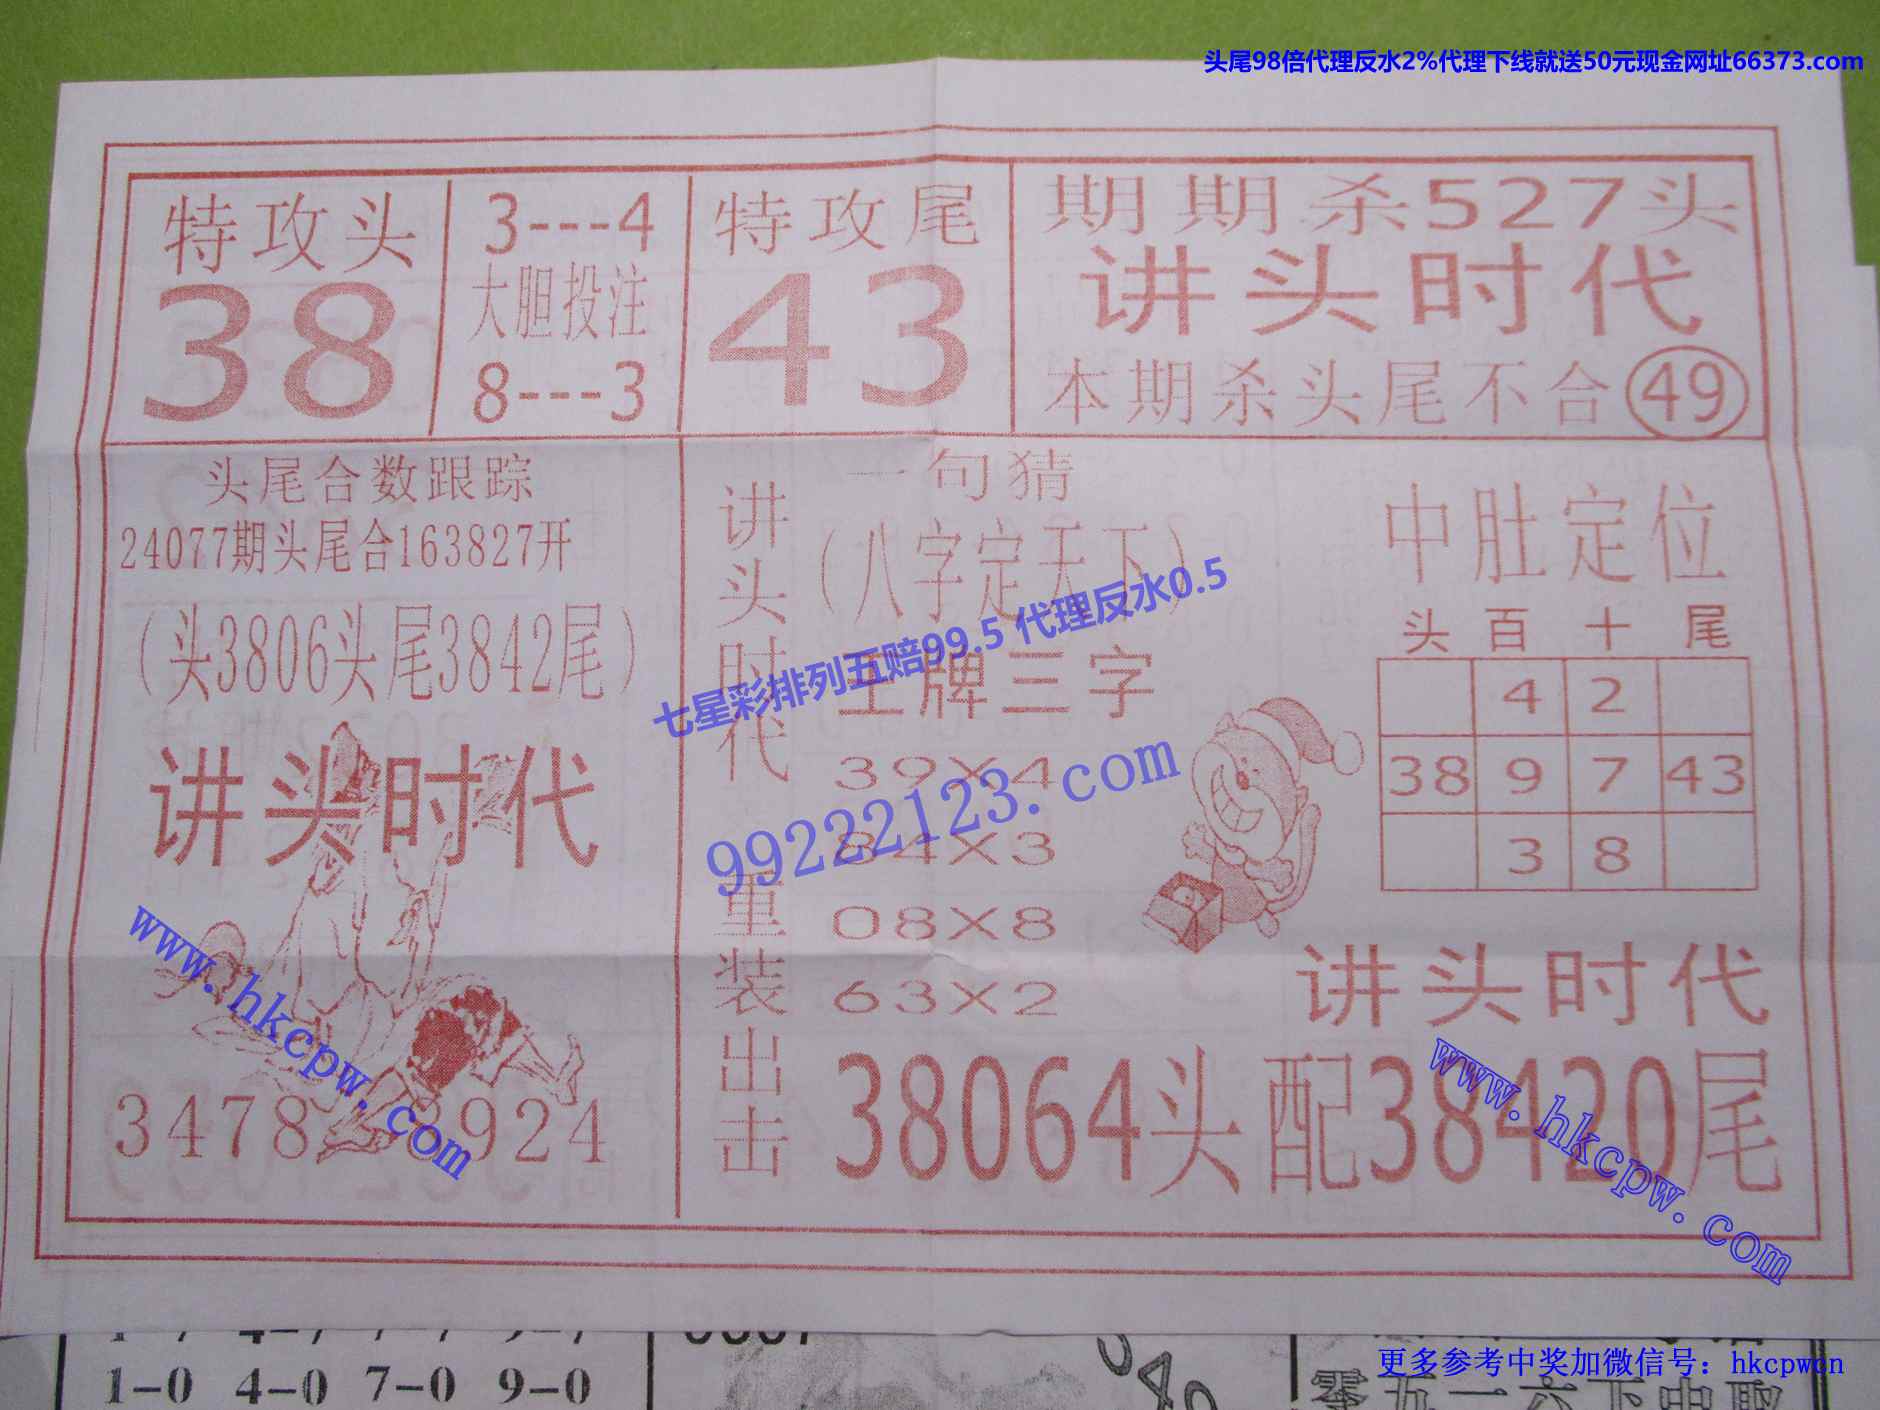 头尾98倍代理反水2%代理下线就送50元现金网址66373.com
特攻头
38
3---4
大胆投注
8---3
特攻尾
43
期期杀527头
讲头时代
本期杀头尾不合49
头尾合数跟踪
24077期头尾合163827开
(头3806头尾3842尾)
讲头时代
3478
924
讲头时代
重装出击
一句猜
(八字定天下)
王牌三字
39X4
84X3
08X8
63X2
中肚定位
头 百 十 尾
4 2
38 9 7 43
3 8
讲头时代
38064头配38420尾
七星彩排列五赔99.5 代理反水0.5
99222123.com
www.hkcpw.com
www.hkcpw.com
1-0 4-0 7-0 9-0
更多参考中奖加微信号：hkcpwcn